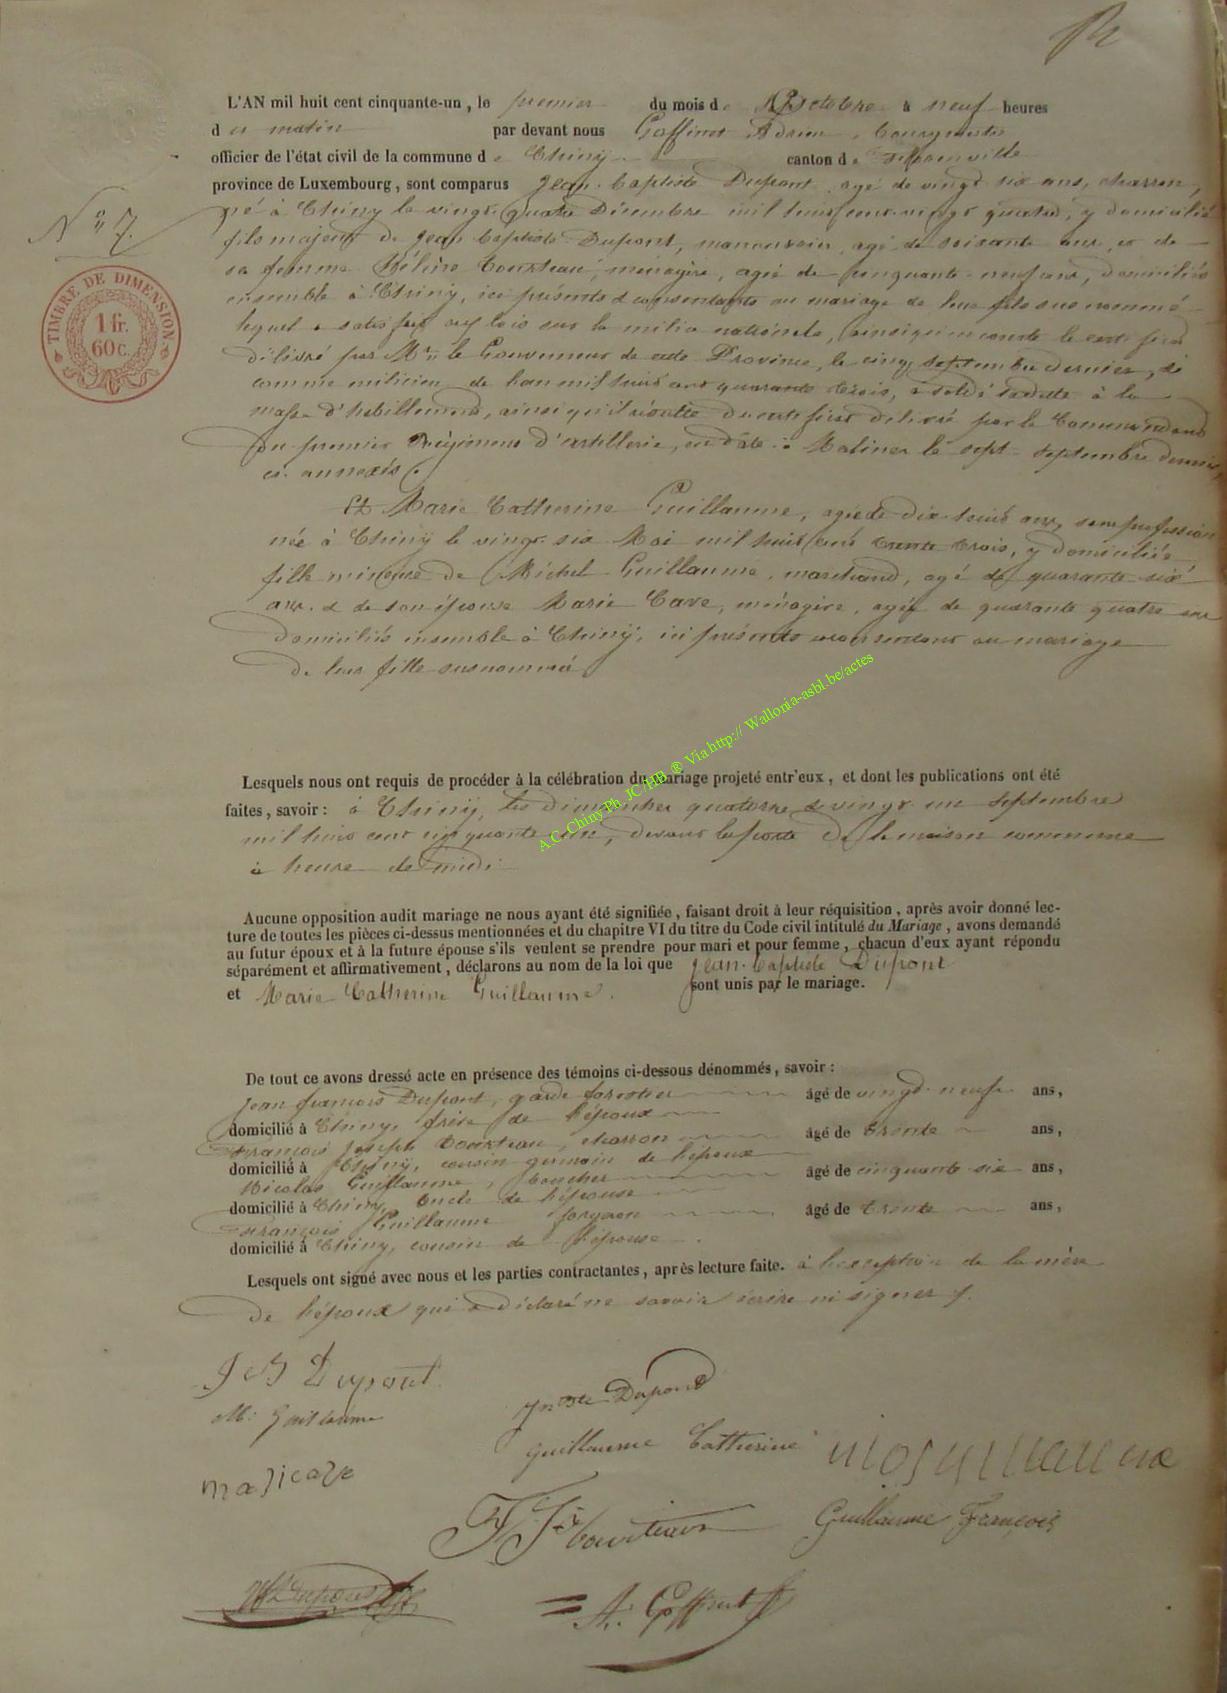 L'AN mil huit cent cinquante-un, le premier du mois d'Octobre à neuf heures
d u matin par devant nous Goffinet Adrien, bourgmestre
officier de l'état civil de la commune de Chiny canton de Florenville
province de Luxembourg, sont comparus Jean-Baptiste Dupont, agé de vingt six ans, charron,
né à Chiny le vingt-quatre Décembre mil huit cent vingt quatre, y domicilié
fils majeur de Jean Baptiste Dupont, manœuvrier, agé de soixante ans, et de
sa femme Hélène Tourteau, ménagère, agée de cinquante-neuf ans, domiciliés
ensemble à Chiny, ici présents & consentants au mariage de leur fils susnommé
lequel a satisfait aux lois sur la milice nationale, ainsi qu'en conste le certificat
délivré par Mr. le Gouverneur de cette Province, le cinq septembre dernier,
comme milicien de l'an mil huit cent quarante trois, a soldé sa dette à la
masse d'habillement, ainsi qu'il résulte du certificat délivré par le Commandant
du premier Régiment d'artillerie, en date à Malines le sept septembre dernier,
ci-annexés.
Et Marie Catherine Guillaume, agée de dix-huit ans, sans profession
née à Chiny le vingt-six Mai mil huit cent trente trois, y domiciliée
fille mineure de Michel Guillaume, marchand, agé de quarante six
ans, & de son épouse Marie Cave, ménagère, agée de quarante quatre ans
domiciliés ensemble à Chiny, ici présents consentant au mariage
de leur fille susnommée
N° 7.
TIMBRE DE DIMENSION
1 fr.
60 c.
Lesquels nous ont requis de procéder à la célébration du mariage projeté entr'eux, et dont les publications ont été
faites, savoir : à Chiny, les dimanches quatorze & vingt un septembre
mil huit cent cinquante un, devant la porte de la maison commune
à heure de midi
A.C. Chiny Ph. JC/HB ® Via http:// Wallonia-asbl.be/actes
Aucune opposition audit mariage ne nous ayant été signifiée, faisant droit à leur réquisition, après avoir donné lec-
ture de toutes les pièces ci-dessus mentionnées et du chapitre VI du titre du Code civil intitulé du Mariage, avons demandé
au futur époux et à la future épouse s'ils veulent se prendre pour mari et pour femme, chacun d'eux ayant répondu
séparément et affirmativement, déclarons au nom de la loi que Jean-Baptiste Dupont
et Marie Catherine Guillaume. sont unis par le mariage.
De tout ce avons dressé acte en présence des témoins ci-dessous dénommés, savoir :
Jean françois Dupont, garde forestier âgé de vingt-neuf ans,
domicilié à Chiny, frère de l'époux
François Joseph Tourteau, charron âgé de trente ans,
domicilié à Chiny, cousin germain de l'époux
Nicolas Guillaume, boucher âgé de cinquante six ans,
domicilié à Chiny, oncle de l'épouse
François Guillaume forgeron âgé de trente ans,
domicilié à Chiny, cousin de l'épouse.
Lesquels ont signé avec nous et les parties contractantes, après lecture faite. à l'exception de la mère
de l'époux qui a déclaré ne savoir écrire ni signer
J B Dupont
Jn Bte Dupond
M: Guillaume
Guillaume Catherine
Guillaume François
A. Goffinet